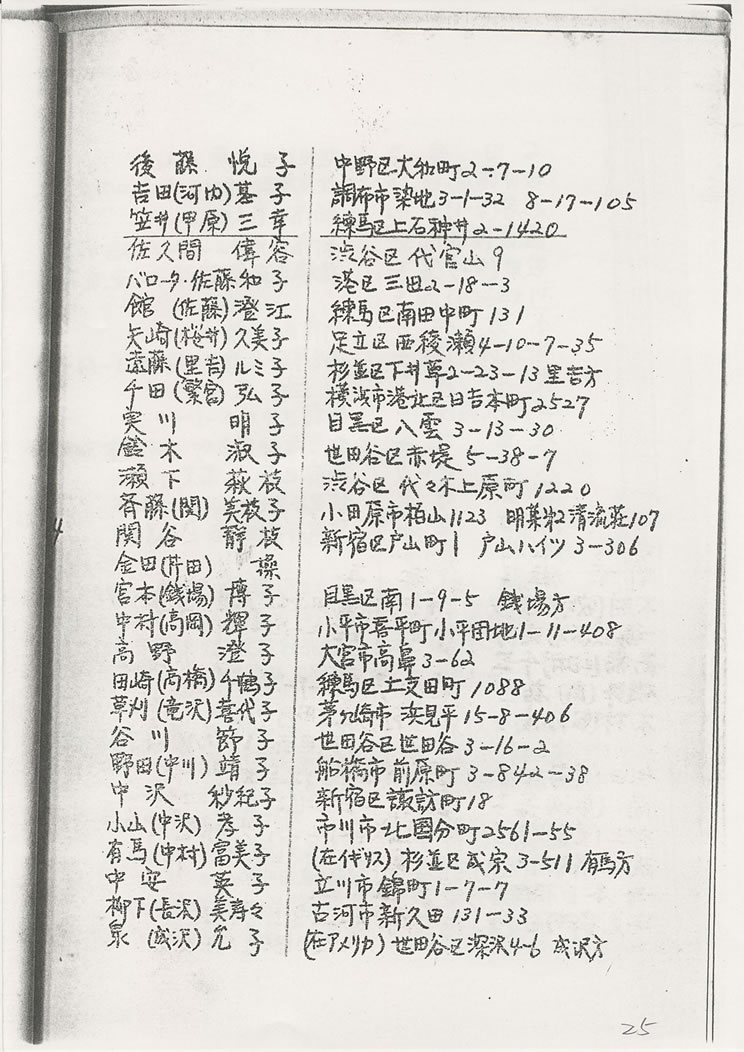 後藤 悦子 中野区大和町2-7-10
吉田(河内)基子 調布市染地3-1-32 8-17-105
笠井(甲原)三幸 練馬区上石神井2-1420
佐久間 偉容 渋谷区代官山9
バロータ・佐藤和子 港区三田2-18-3
館(佐藤)澄江 練馬区南田中町131
矢崎(桜井)久美子 足立区西綾瀬4-10-7-35
遠藤(里吉)ルミ子 杉並区下井草2-23-13里吉方
千田(繁宮)弘子 横浜市港北区日吉本町2527
実川 明子 目黒区八雲3-13-30
鈴木 淑子 世田谷区赤堤5-38-7
瀬下 萩枝 渋谷区代々木上原町1220
斉藤(関)美枝子 小田原市栢山1123 明菓㐧2清流荘107
関谷 静枝 新宿区戸山町1 戸山ハイツ3-306
金田(井田)
宮本(銭場)博子 目黒区南1-9-5 銭場方
中村(高岡)輝子 小平市喜平町小平団地1-11-408
高野 澄子 大宮市高鼻3-62
田崎(高橋)千鶴子 練馬区土支田町1088
草刈(竜沢)喜代子 茅ヶ崎市浜見平15-8-406
谷川 節子 世田谷区世田谷3-16-2
野田(中川)靖子 船橋市前原町3-842-38
中沢 紗紀子 新宿区諏訪町18
小山(中沢)孝子 市川市北國分町2561-55
有馬(中村)富美子 (在イギリス)杉並区成宗3-511有馬方
中安 英子 立川市錦町1-7-7
柳下(長沢)美寿々 古河市新久田131-33
泉(成沢)允子 (在アメリカ)世田谷区深沢4-6 成沢方
25